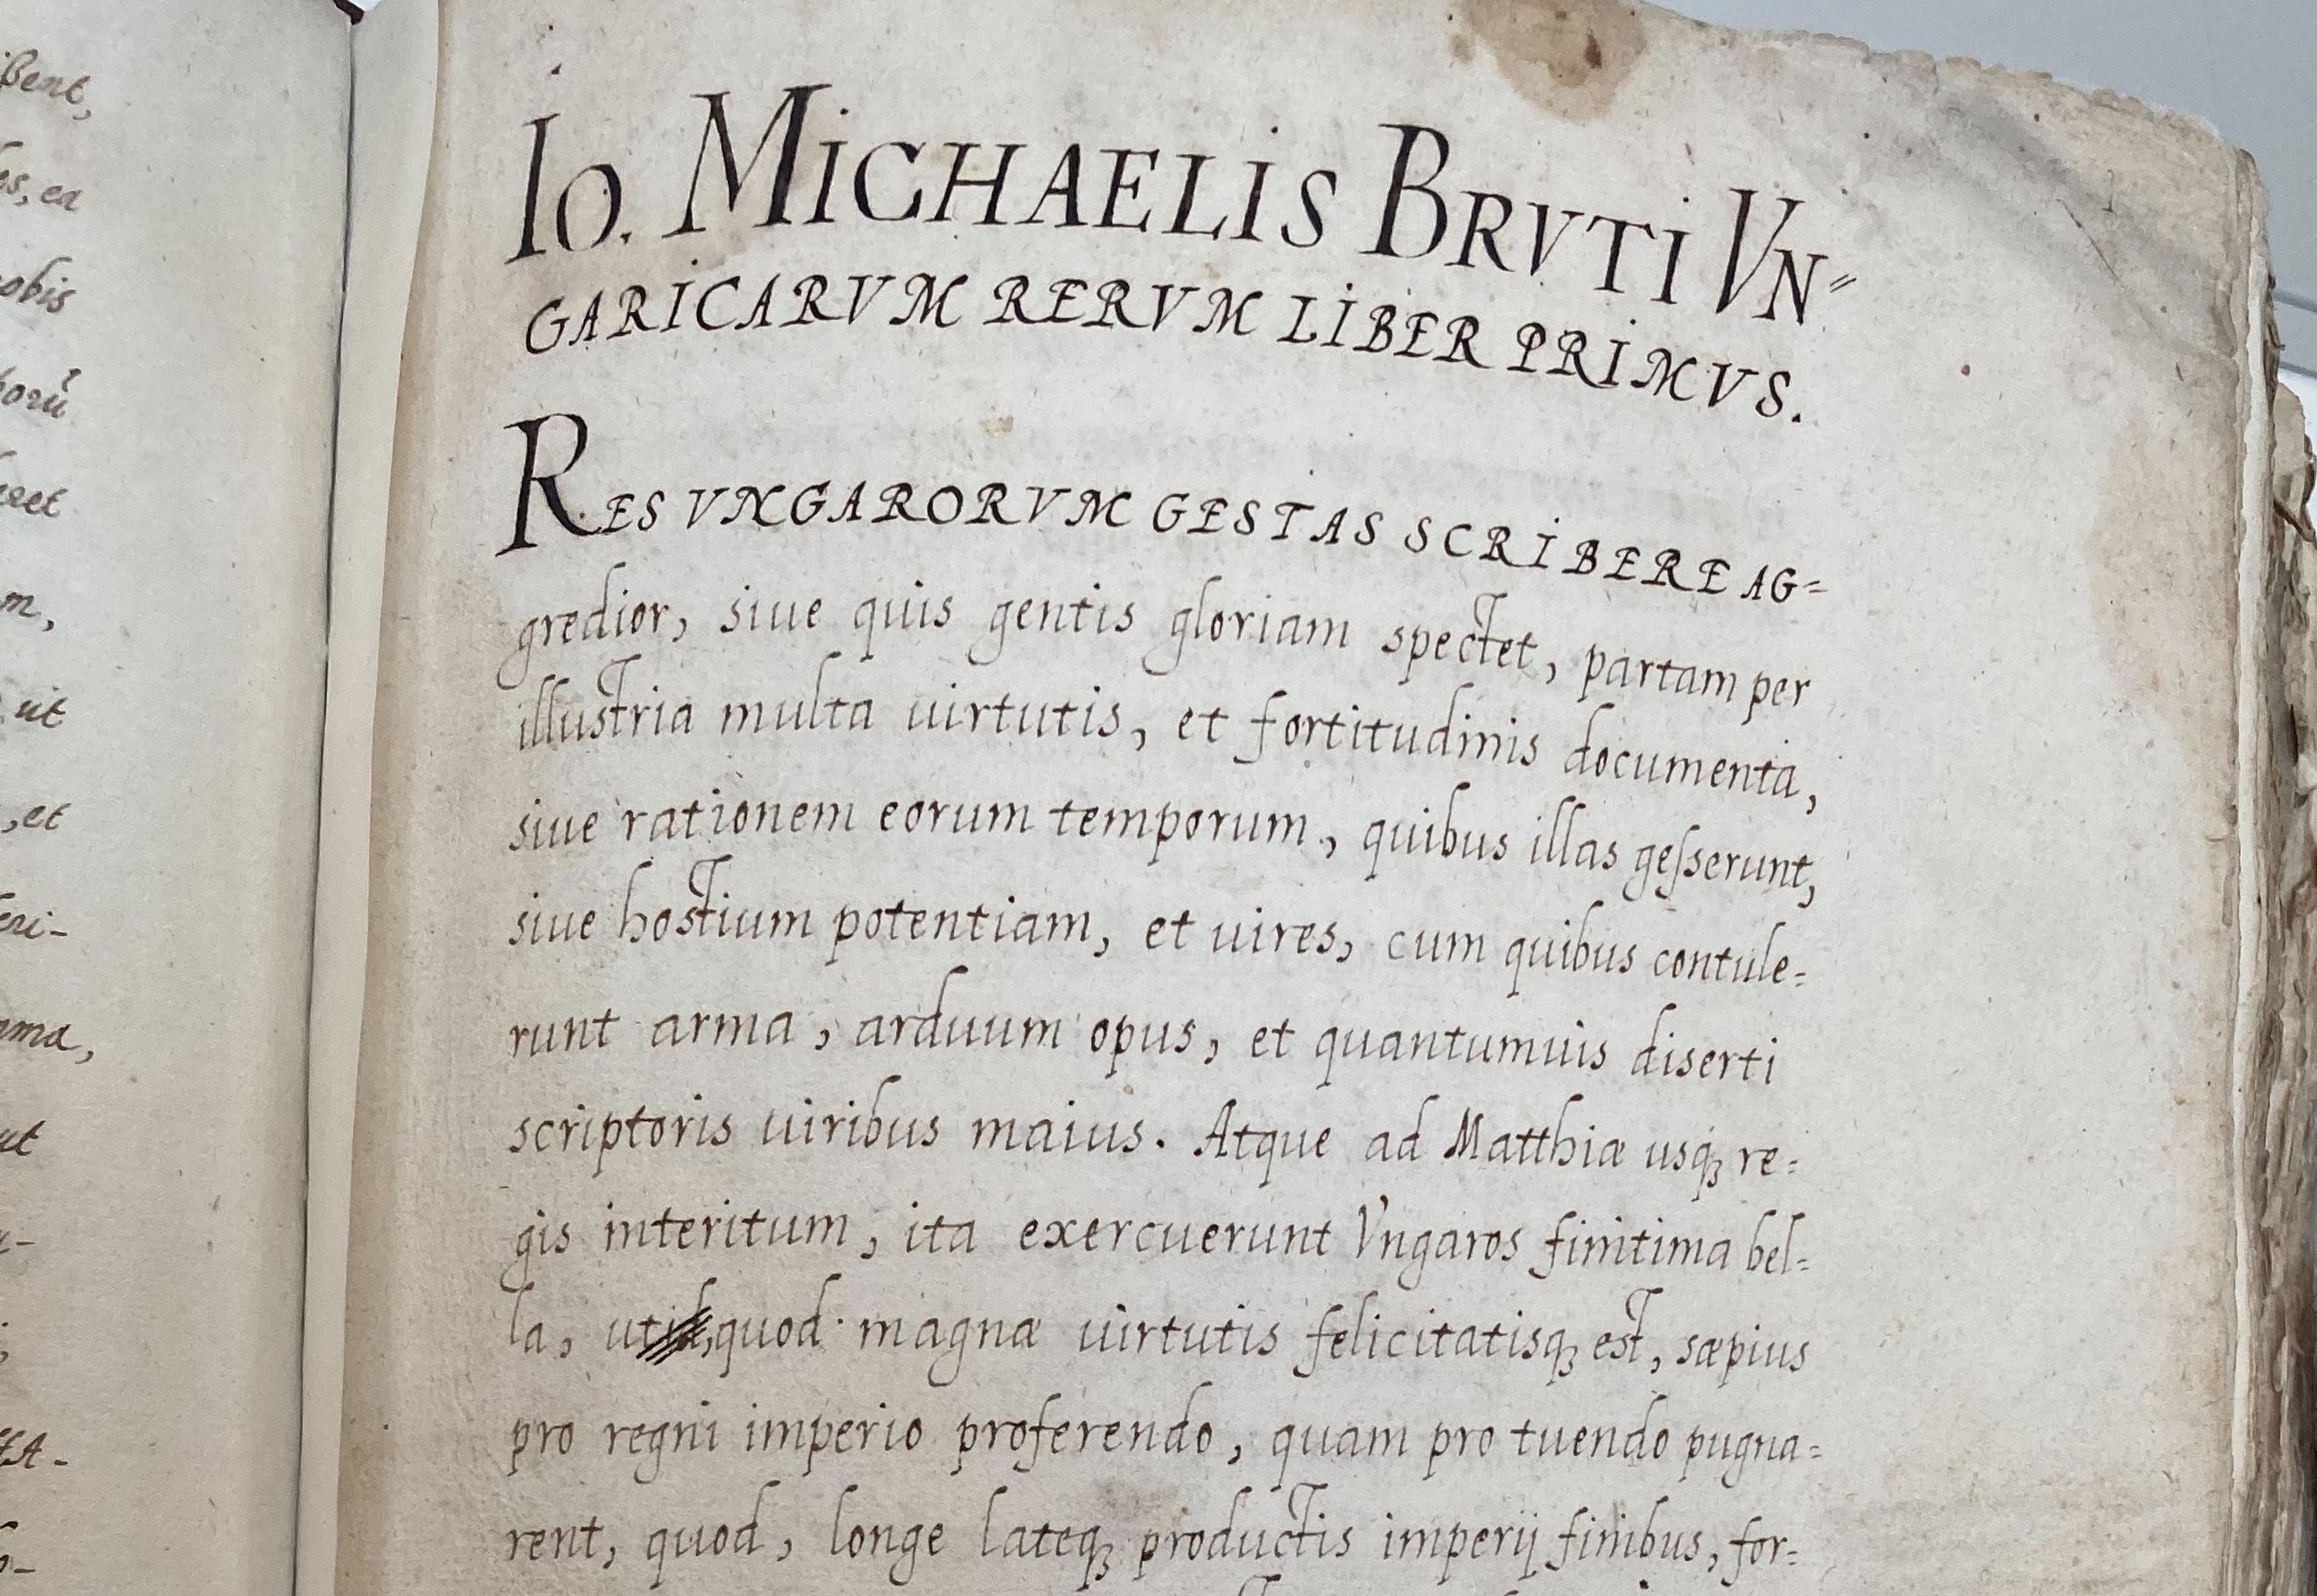 ßent,
os, ea
obis
porũ
ret
m,
ut
, et
eri-
mma,
ut
IO. MICHAELIS BRVTI VN=
GARICARVM RERVM LIBER PRIMVS.
RES VNGARORVM GESTAS SCRIBERE AG=
gredior, siue quis gentis gloriam spectet, partam per
illustria multa uirtutis, et fortitudinis documenta,
siue rationem eorum temporum, quibus illas geſserunt,
siue hostium potentiam, et uires, cum quibus contule=
runt arma, arduum opus, et quantumuis diserti
scriptoris uiribus maius. Atque ad Matthiæ usqꝫ re=
gis interitum, ita exercuerunt Vngaros finitima bel=
la, ut quod magnæ uirtutis felicitatisqꝫ est, sæpius
pro regni imperio proferendo, quam pro tuendo pugna=
rent, quod, longe lateqꝫ productis imperij finibus, for=